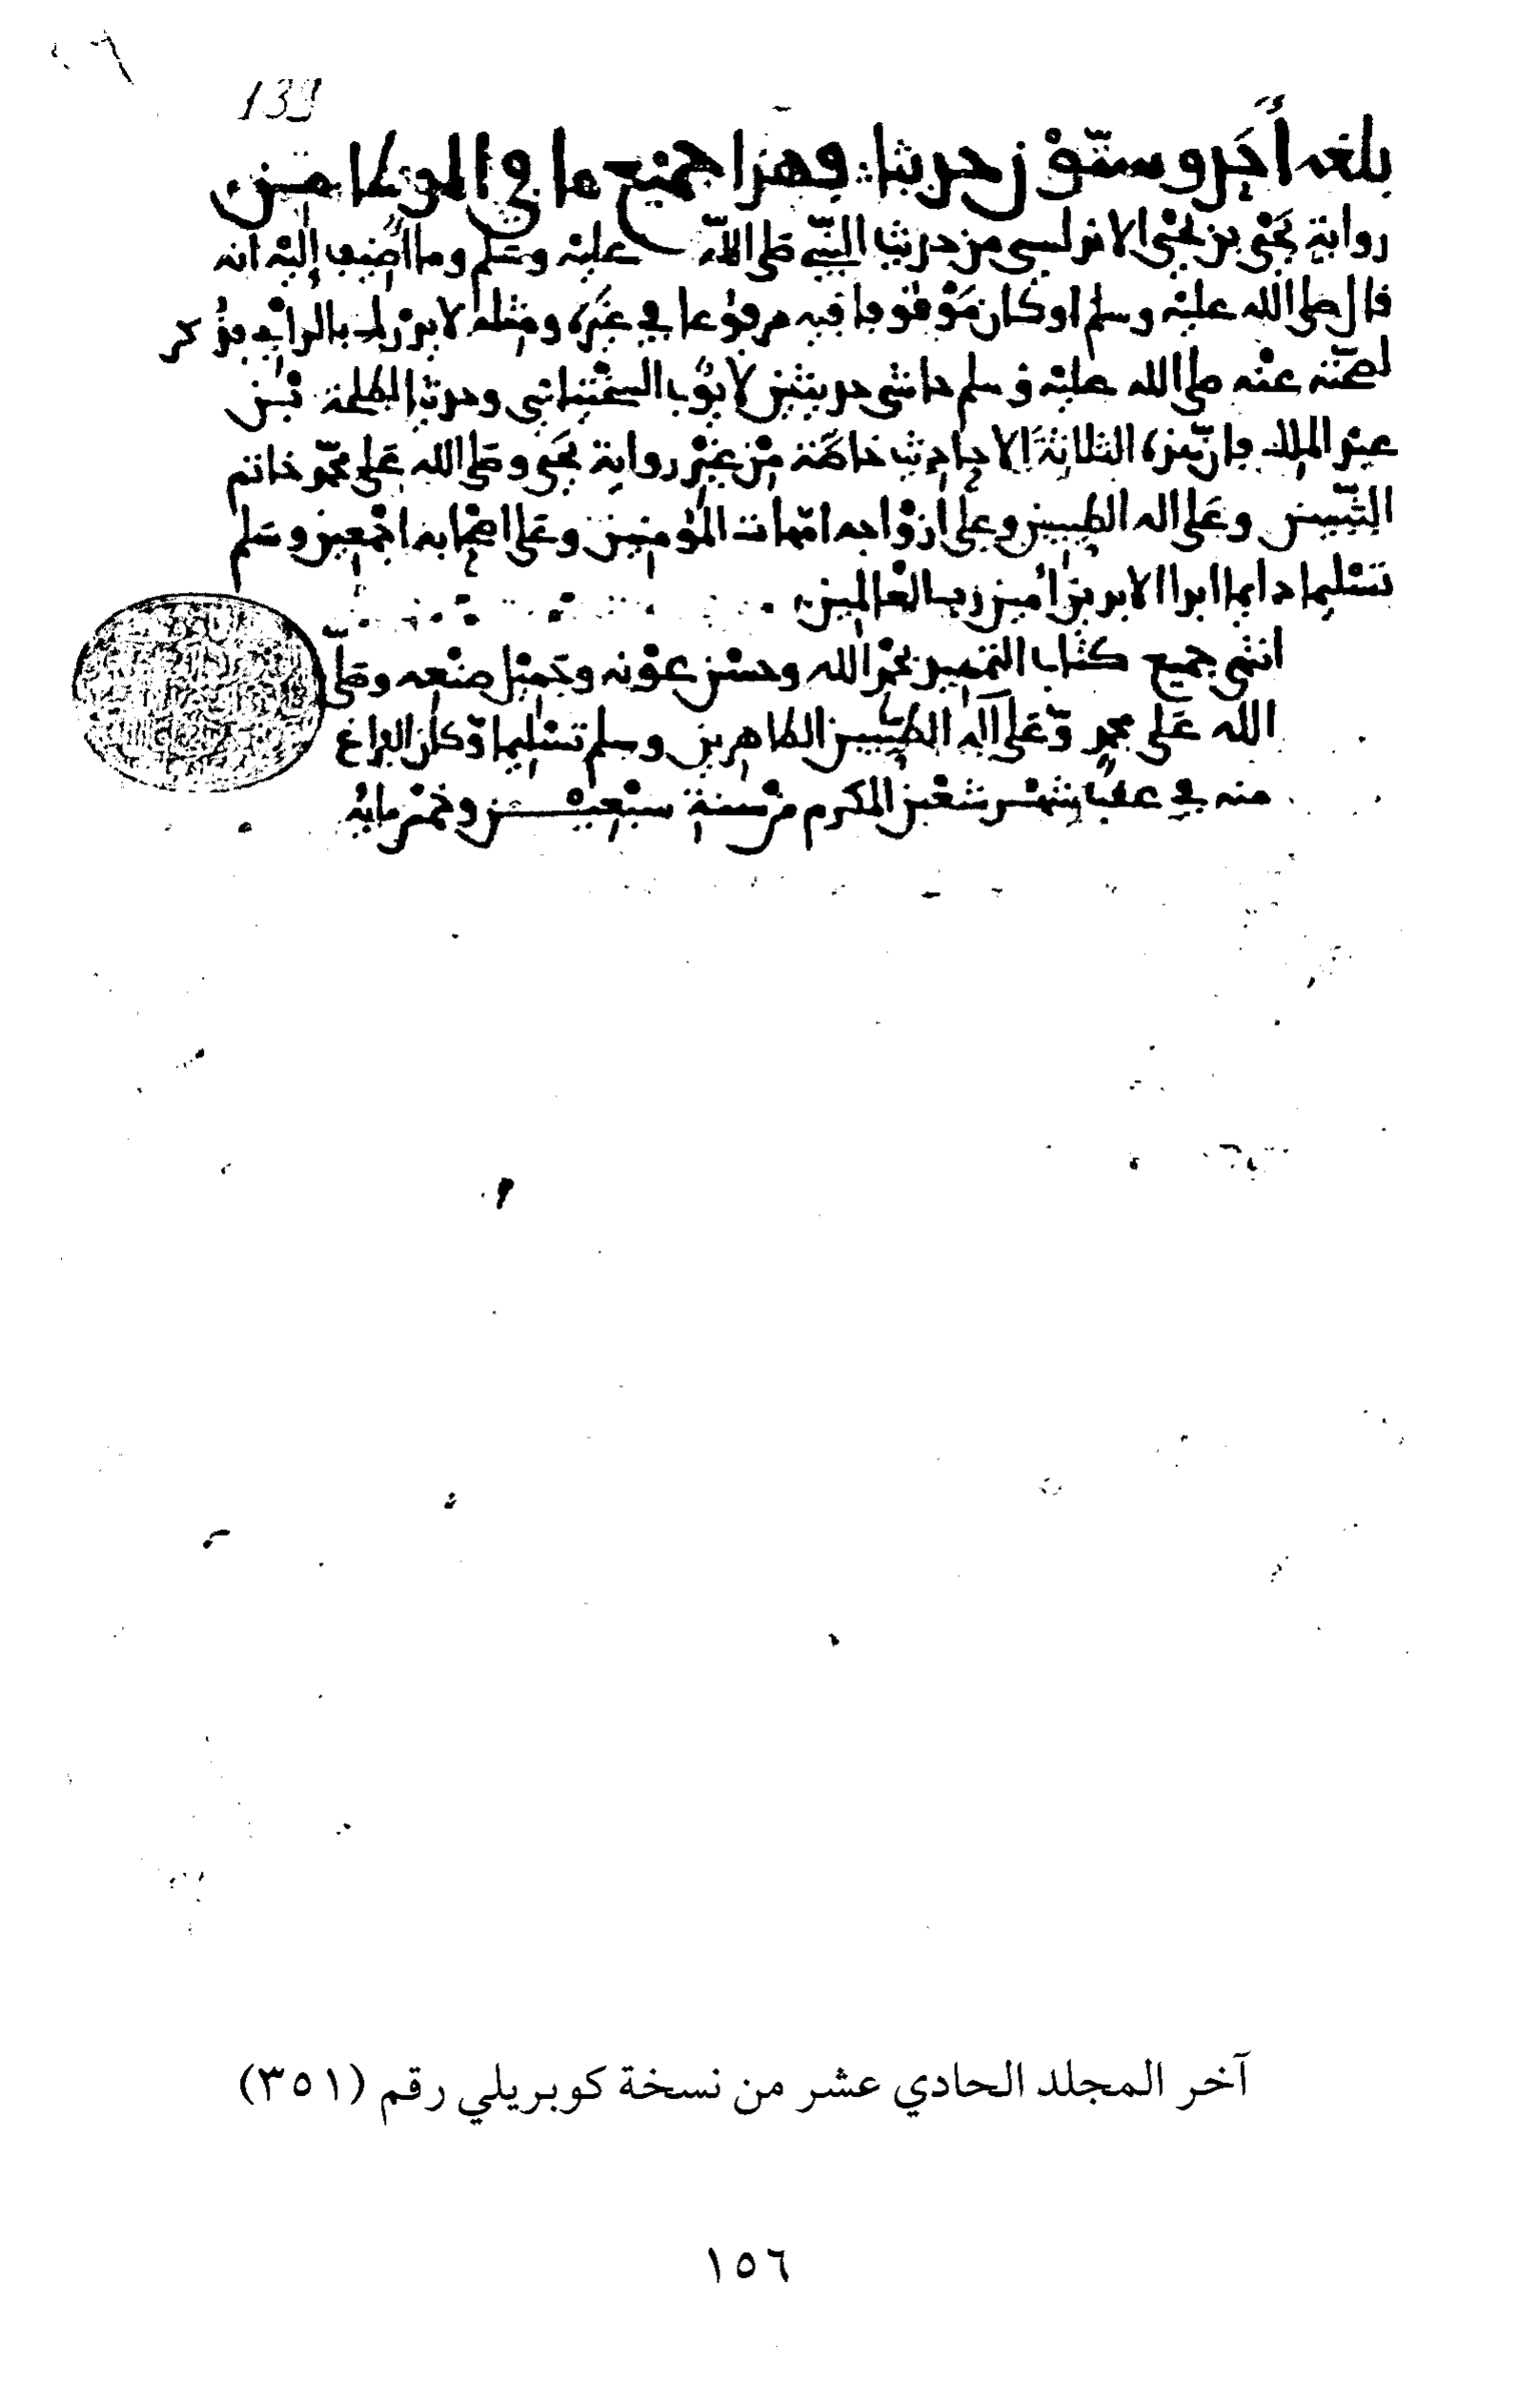 139
بلغه أحد وستون حديثا فهذا جميع ما في الموطا من
رواية يحيى بن يحيى الاندلسي من حديث النبي صلى الله عليه وسلم وما اضيف إليه انه
قال صلى الله عليه وسلم او كان موقوفا فيه مرفوعا في غيره ومثله لا يدرك بالراي فذكر
لصحته عنه صلى الله عليه وسلم حاشى حديثين لايوب السختياني وحديثا لطلحة بن
عبد الملك فان هذه الثلاثة الاحاديث خاصة من غير رواية يحيى وصلى الله على محمد خاتم
النبيين وعلى اله الطيبين وعلى ازواجه امهات المؤمنين وعلى اصحابه اجمعين وسلم
تسليما دايما ابدا الابدين امين رب العالمين
انتهى جميع كتاب التمهيد بحمد الله وحسن عونه وجميل صنعه وصلى
الله على محمد وعلى آله الطيبين الطاهرين وسلم تسليما وكان الفراغ
منه في عقب شهر شعبن المكرم من سنة سبعين وخمس مايه
آخر المجلد الحادي عشر من نسخة كوبريلي رقم (٣٥١)
١٥٦